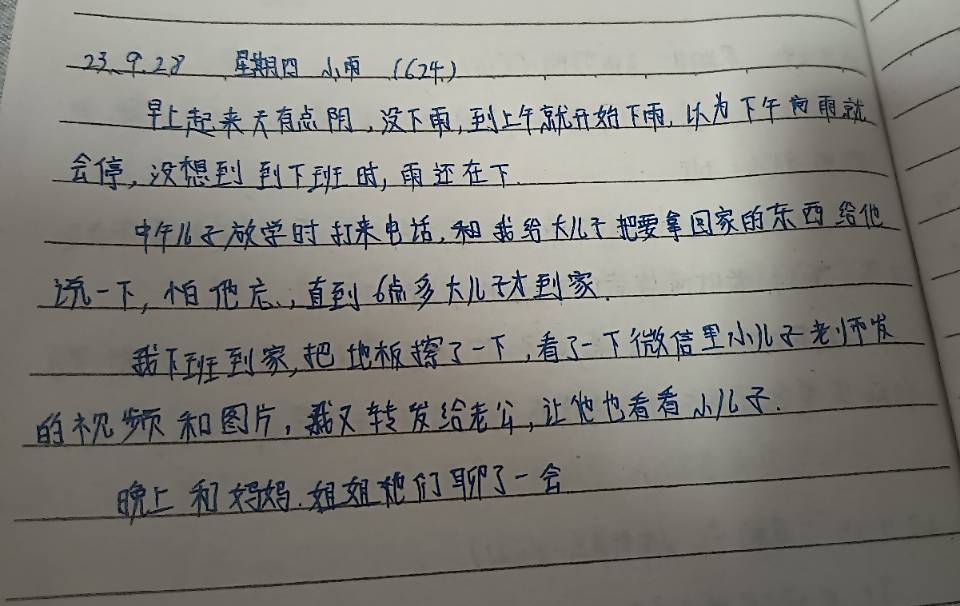 23.9.28 星期四 小雨 (624)
早上起来天有点阴,没下雨,到上午就开始下雨,以为下午雨就
会停,没想到到下班时,雨还在下.
中午儿子放学时打来电话,和我给大儿子把要拿回家的东西给他
说一下,怕他忘.,直到6点多大儿子才到家.
我下班到家,把地板擦了一下,看了一下微信里小儿子老师发
的视频和图片,我又转发给老公,让他也看看小儿子.
晚上和妈妈.姐姐他们聊了一会